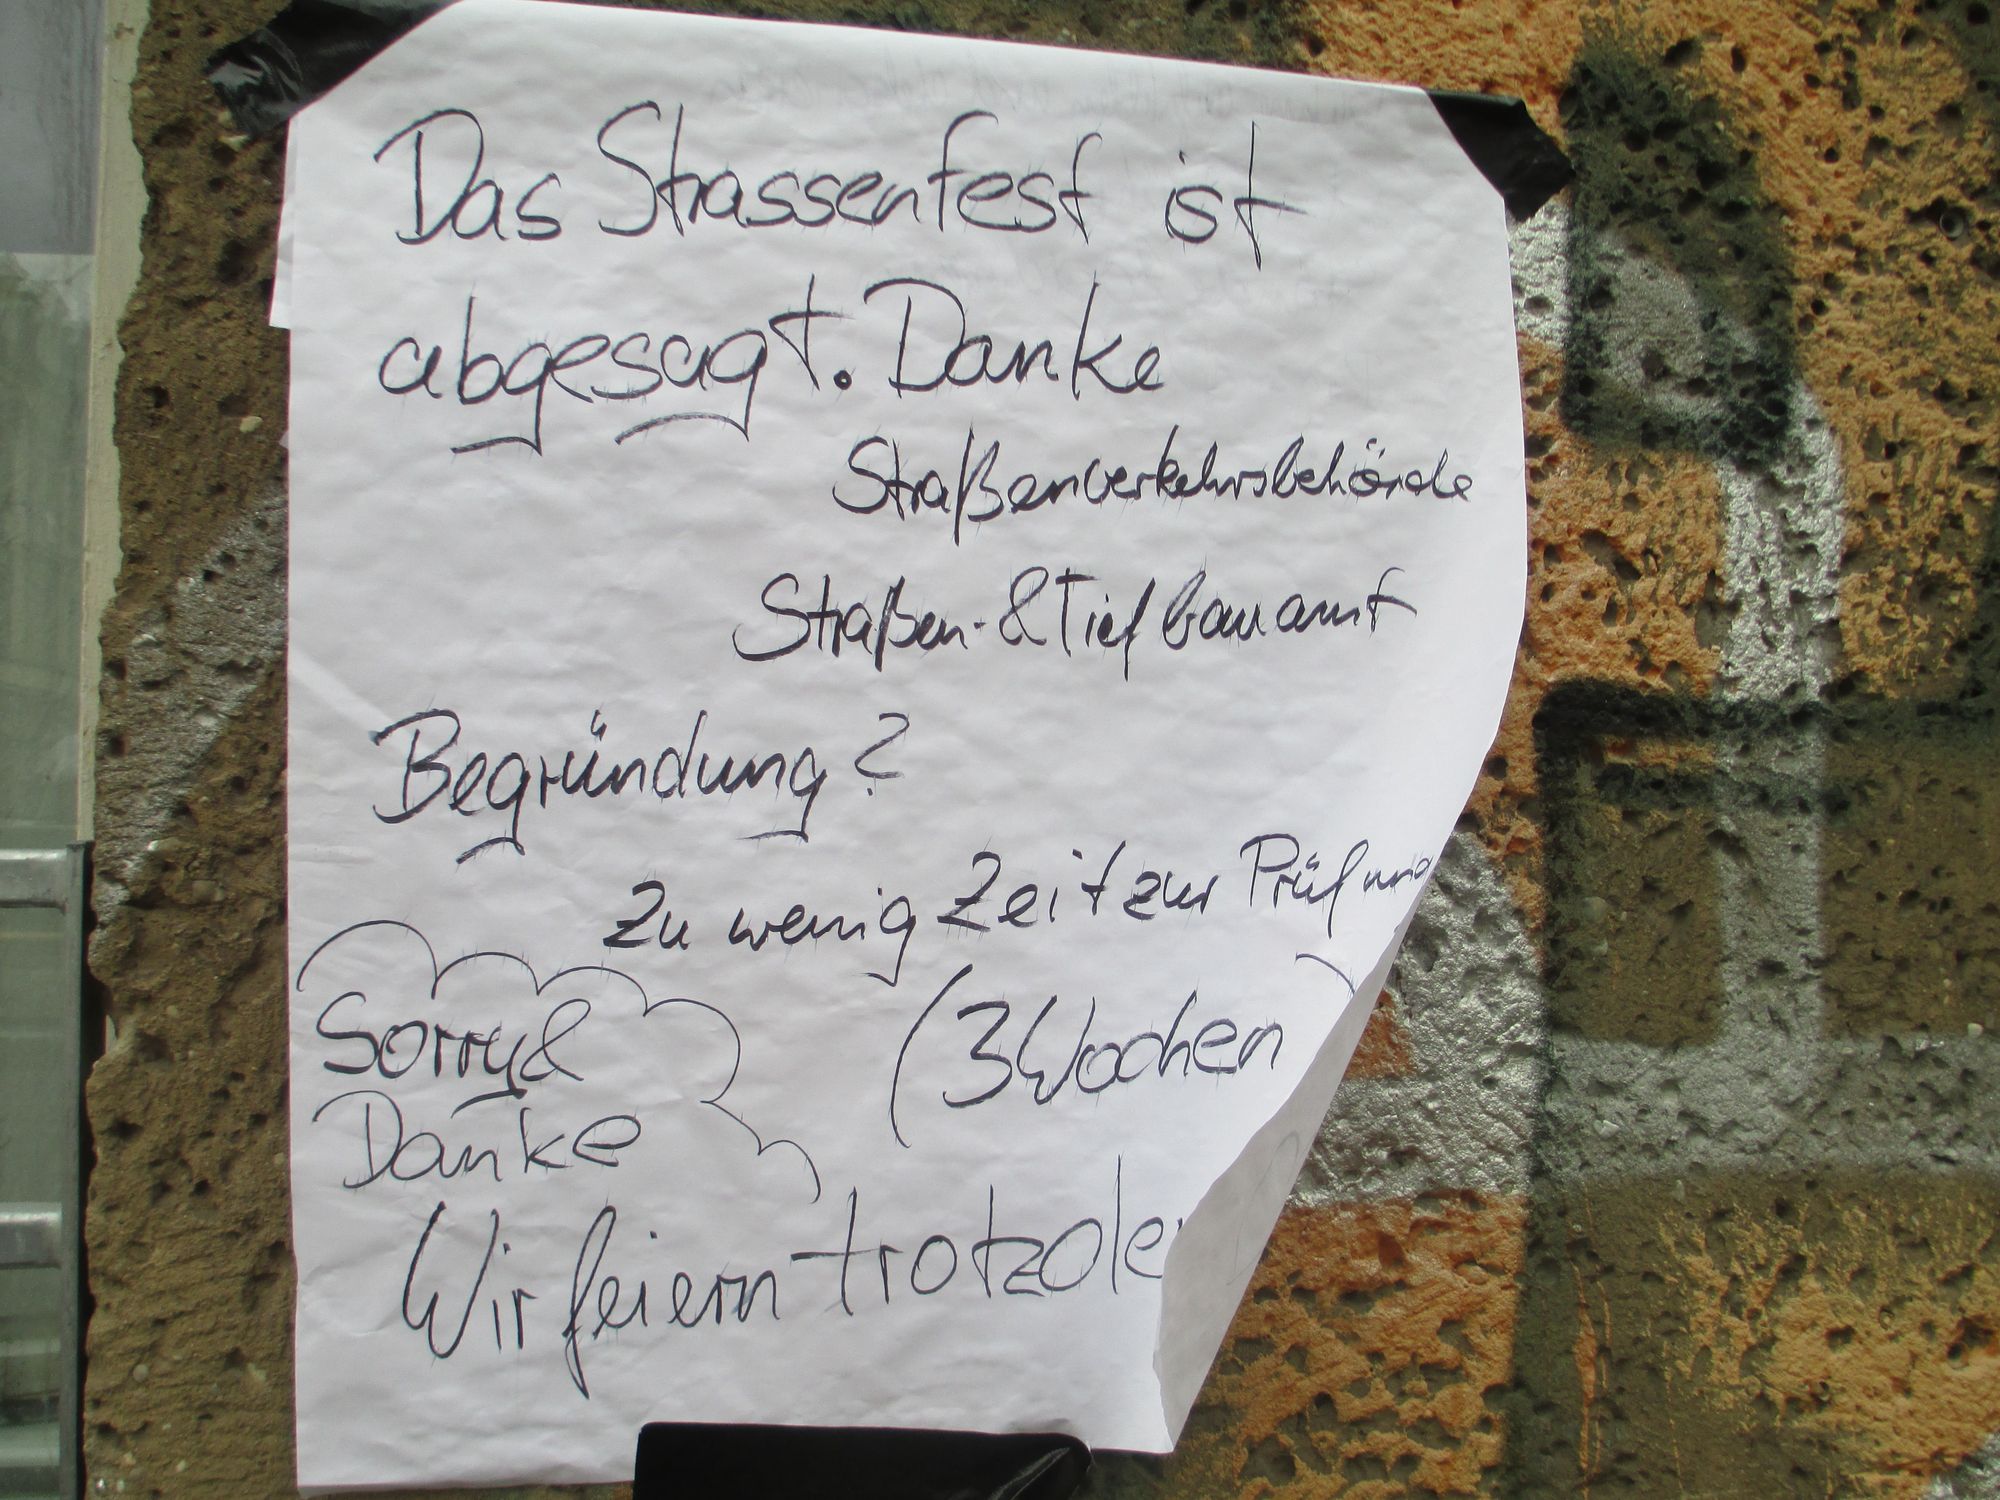 Das Strassenfest ist
abgesagt. Danke
Straßenverkehrsbehörde
Straßen- & Tiefbauamt
Begründung?
Zu wenig Zeit zur Prüfung
(3 Wochen)
Sorry &
Danke
Wir feiern trotzde